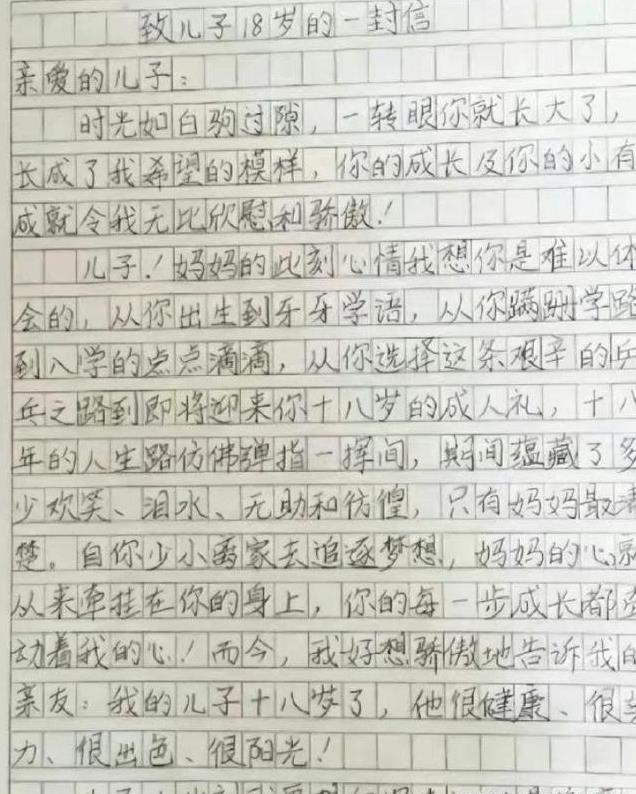 致儿子18岁的一封信
亲爱的儿子：
时光如白驹过隙，一转眼你就长大了，
长成了我希望的模样，你的成长及你的小有
成就令我无比欣慰和骄傲！
儿子！妈妈的此刻心情我想你是难以体
会的，从你出生到牙牙学语，从你蹒跚学路
到入学的点点滴滴，从你选择这条艰辛的乒
乓之路到即将迎来你十八岁的成人礼，十八
年的人生路仿佛弹指一挥间，期间蕴藏了多
少欢笑、泪水、无助和彷徨，只有妈妈最清
楚。自你少小离家去追逐梦想，妈妈的心就
从来牵挂在你的身上，你的每一步成长都牵
动着我的心！而今，我好想骄傲地告诉我的
亲友：我的儿子十八岁了，他很健康、很
力、很出色、很阳光！